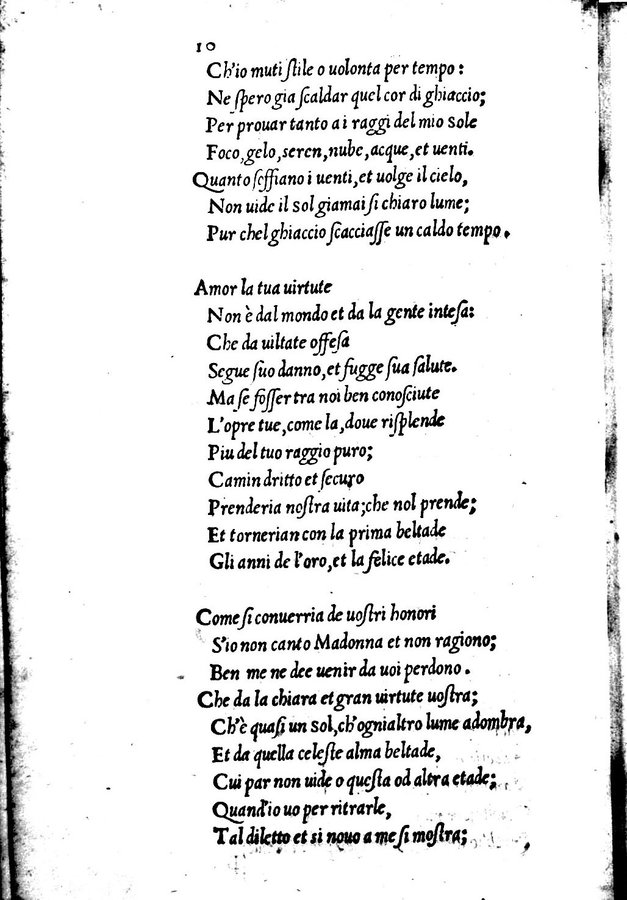 10
Ch'io muti ſtile o uolonta per tempo:
Ne ſpero gia ſcaldar quel cor di ghiaccio;
Per prouar tanto a i raggi del mio sole
Foco, gelo, seren, nube, acque, et uenti.
Quanto ſoffiano i uenti, et uolge il cielo,
Non uide il sol giamai ſi chiaro lume;
Pur chel ghiaccio ſcacciaſſe un caldo tempo.
Amor la tua uirtute
Non è dal mondo et da la gente inteſa:
Che da uiltate offeſa
Segue ſuo danno, et fugge ſua ſalute.
Ma ſe foſſer tra noi ben conoſciute
L'opre tue, come la, doue riſplende
Piu del tuo raggio puro;
Camin dritto et ſecuro
Prenderia noſtra uita; che nol prende;
Et tornerian con la prima beltade
Gli anni de l'oro, et la felice etade.
Come ſi conuerria de uoſtri honori
S'io non canto Madonna et non ragiono;
Ben me ne dee uenir da uoi perdono.
Che da la chiara et gran uirtute uoſtra;
Ch'è quaſi un sol, ch'ognialtro lume adombra,
Et da quella celeſte alma beltade,
Cui par non uide o queſta od altra etade;
Quand'io uo per ritrarle,
Tal diletto et si nouo a me ſi moſtra;